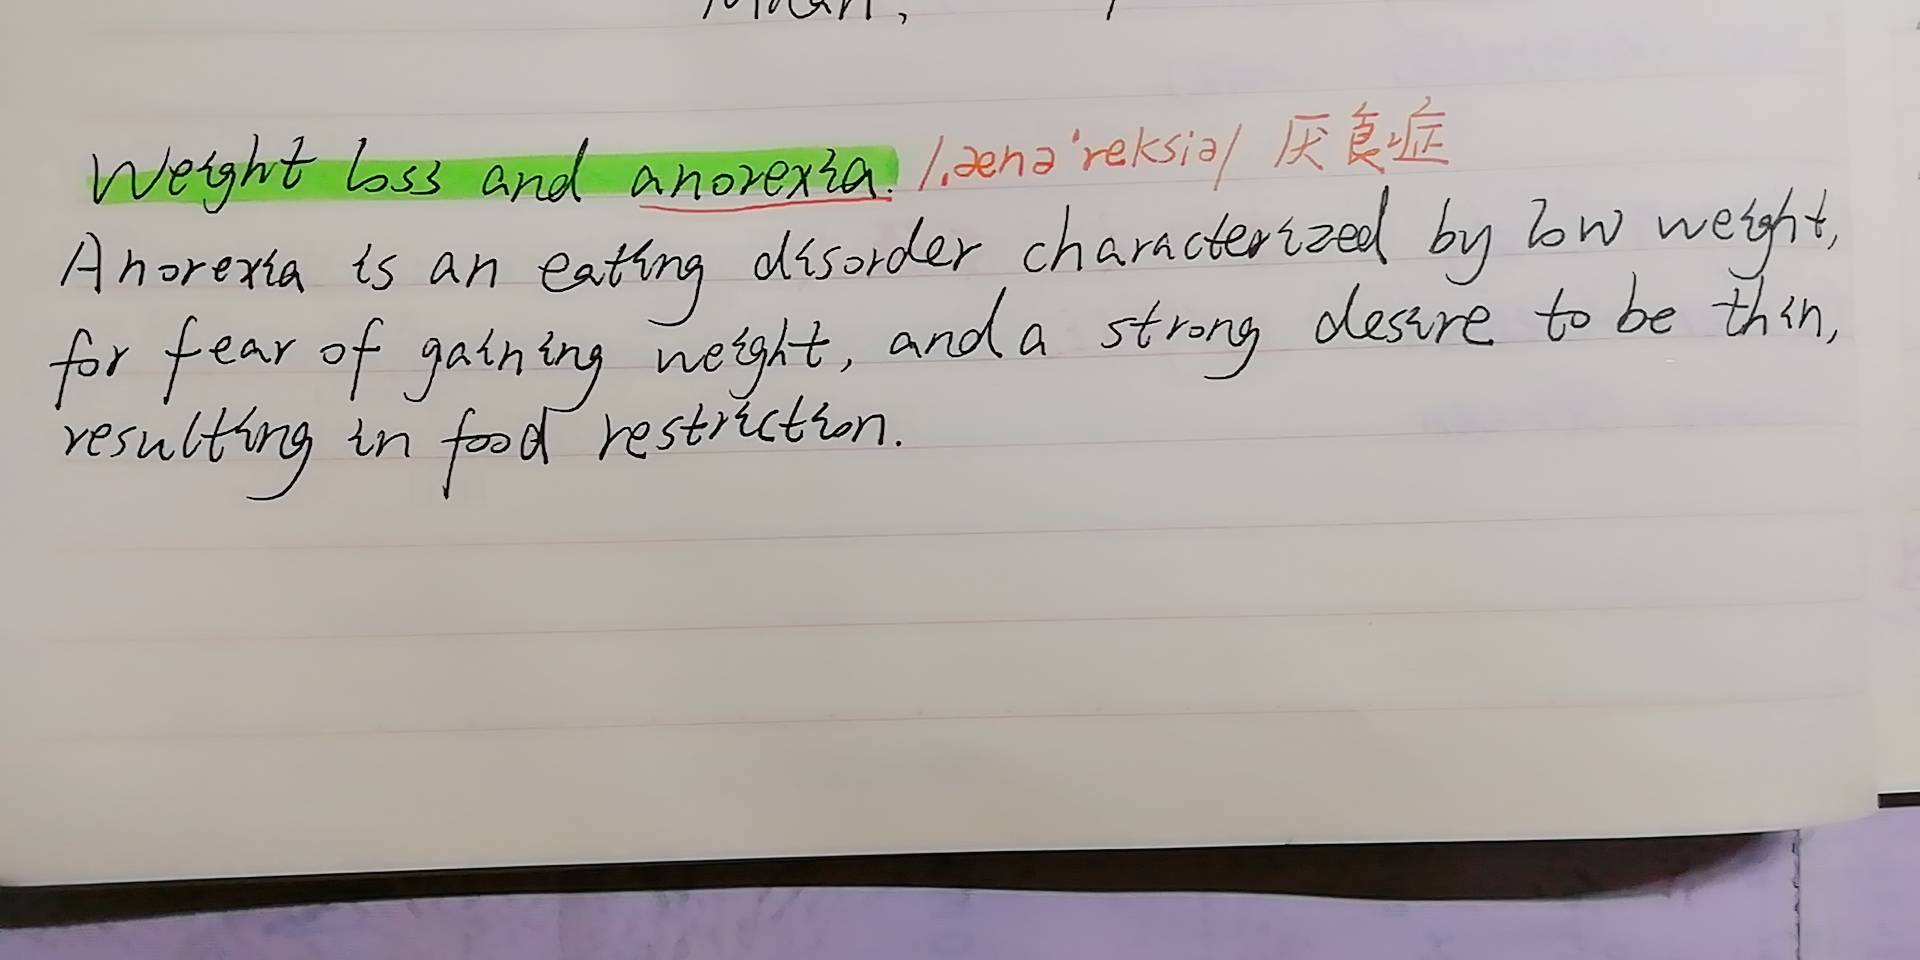 Weight loss and anorexia. /ˌænəˈreksiə/ 厌食症
Anorexia is an eating disorder characterized by low weight,
for fear of gaining weight, and a strong desire to be thin,
resulting in food restriction.